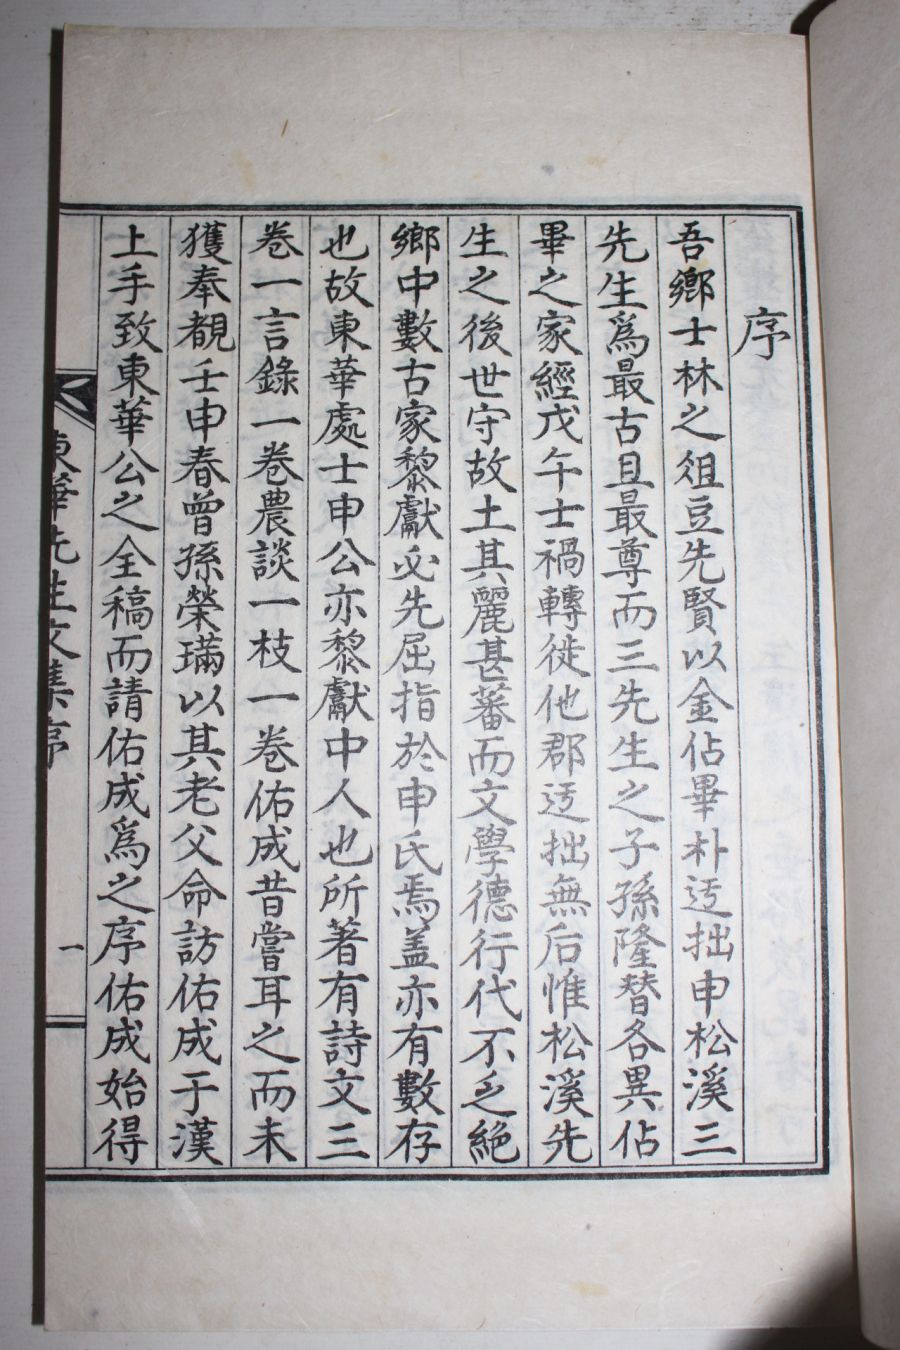 序
吾鄉士林之俎豆先賢以金佔畢朴迃拙申松溪三
先生爲最古且最尊而三先生之子孫隆替各異佔
畢之家經戊午士禍轉徙他郡迃拙無后惟松溪先
生之後世守故土其麗甚蕃而文學德行代不乏絕
鄉中數古家黎獻必先屈指於申氏焉盖亦有數存
也故東華處士申公亦黎獻中人也所著有詩文三
卷一言錄一卷農談一枝一卷佑成昔嘗耳之而未
獲奉覩壬申春曾孫榮㻴以其老父命訪佑成于漢
上手致東華公之全稿而請佑成爲之序佑成始得
東華先生文集序
一